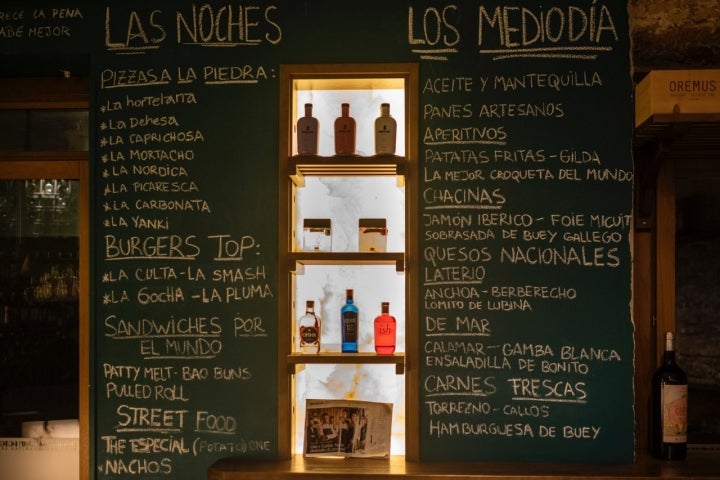 RECE LA PENA
DE MEJOR
LAS NOCHES
PIZZAS A LA PIEDRA:
*LA hortelana
*LA Dehesa
*LA CAPRICHOSA
*LA MORTACHO
*LA NORDICA
*LA PICARESCA
*LA CARBONATA
*LA YANKI
BURGERS TOP:
*LA CULTA-LA SMASH
*LA GOCHA-LA PLUMA
SANDWICHES POR
EL MUNDO
PATTY MELT-BAO BUNS
PULLED ROLL
STREET FOOD
THE ESPECIAL (POTATO) ONE
*NACHOS
LOS MEDIODÍA
ACEITE Y MANTEQUILLA
PANES ARTESANOS
APERITIVOS
PATATAS FRITAS-GILDA
LA MEJOR CROQUETA DEL MUNDO
CHACINAS
JAMÓN IBERICO-FOIE MICUIT
SOBRASADA DE BUEY GALLEGO
QUESOS NACIONALES
LATERIO
ANCHOA-BERBERECHO
LOMITO DE LUBINA
DE MAR
CALAMAR-GAMBA BLANCA
ENSALADILLA DE BONITO
CARNES FRESCAS
TORREZNO-CALLOS
HAMBURGUESA DE BUEY
OREMUS
ish